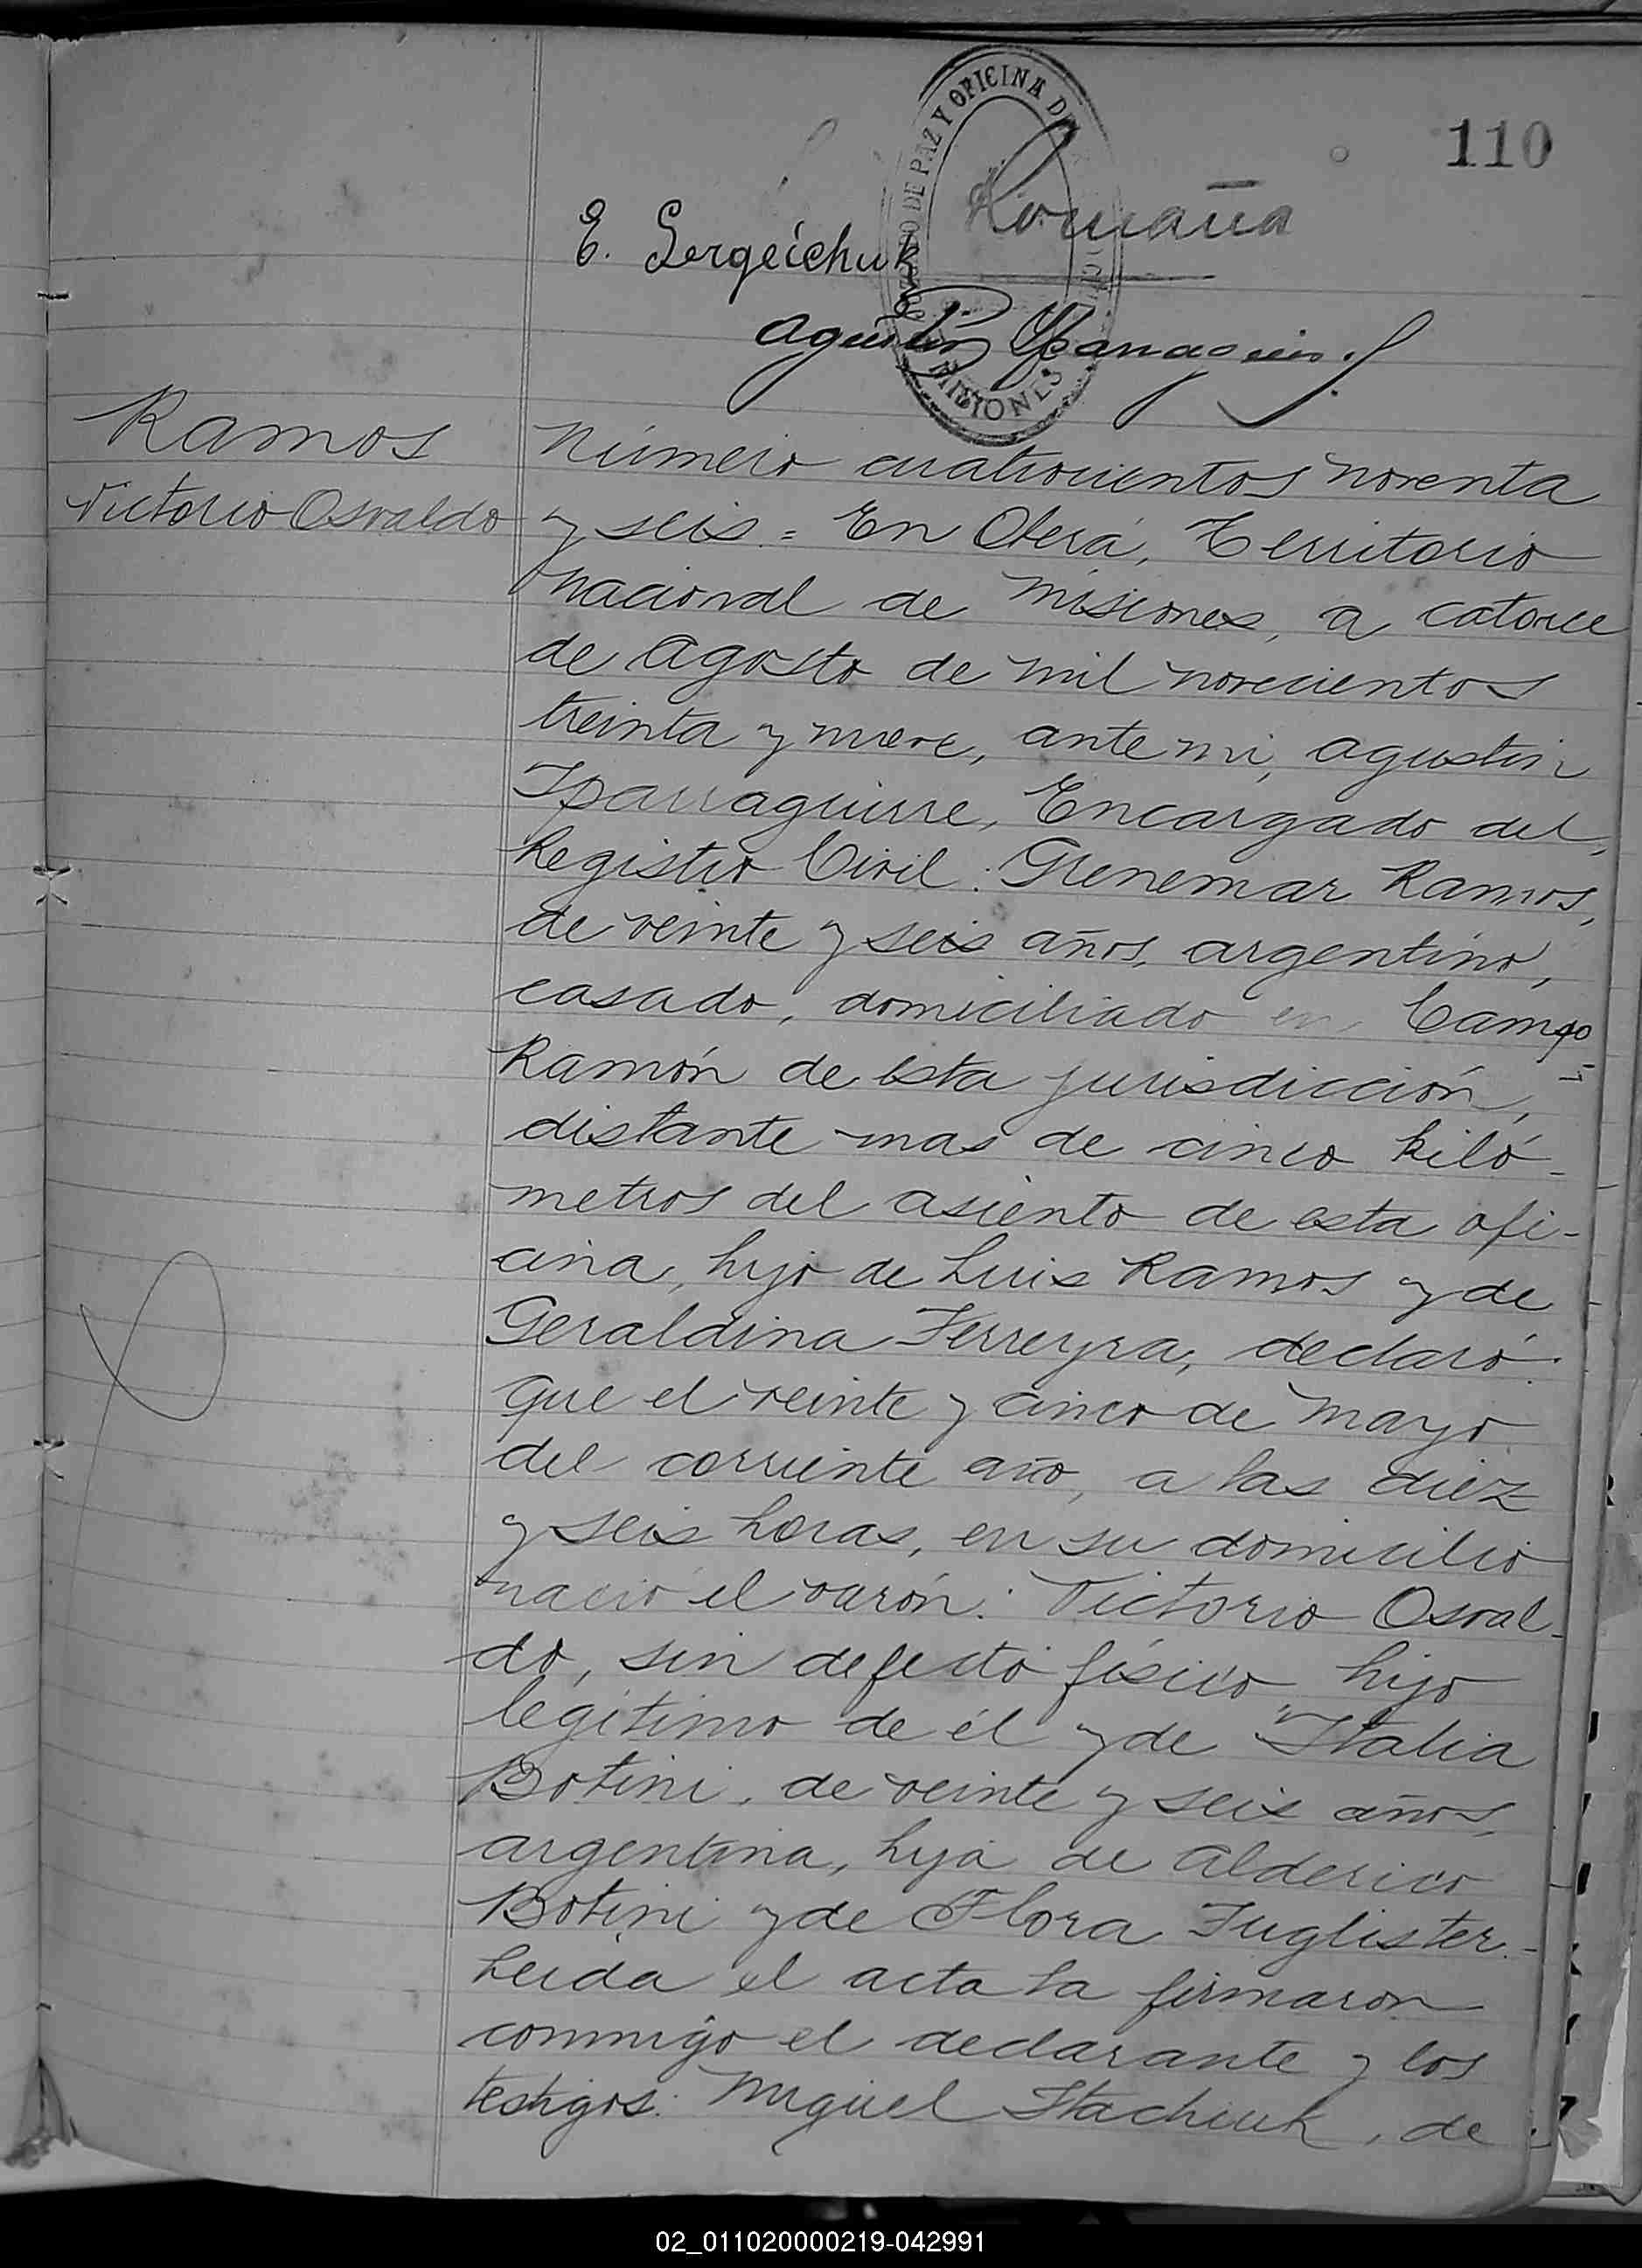 110
JUZGADO DE PAZ Y OFICINA DE
MISIONES
E. Sergeichuk
Agustin Yparraguirre
Ramos
Victorio Osvaldo
Número cuatrocientos noventa
y seis = En Oberá, Territorio
Nacional de Misiones, a catorce
de Agosto de mil novecientos
treinta y nueve, ante mi, Agustin
Yparraguirre, Encargado del
Registro Civil: Grenemar Ramos,
de veinte y seis años, argentino,
casado, domiciliado en Campo
Ramón de esta jurisdicción,
distante mas de cinco kiló-
metros del asiento de esta ofi-
cina, hijo de Luis Ramos y de
Geraldina Ferreyra, declaró:
Que el veinte y cinco de Mayo
del corriente año, a las diez
y seis horas, en su domicilio
nació el varón: Victorio Osval-
do, sin defecto físico, hijo
legítimo de él y de Italia
Botini, de veinte y seis años,
argentina, hija de Alderico
Botini y de Flora Fuglister.-
Leida el acta la firmaron
conmigo el declarante y los
testigos: Miguel Stachuk, de
02_011020000219-042991